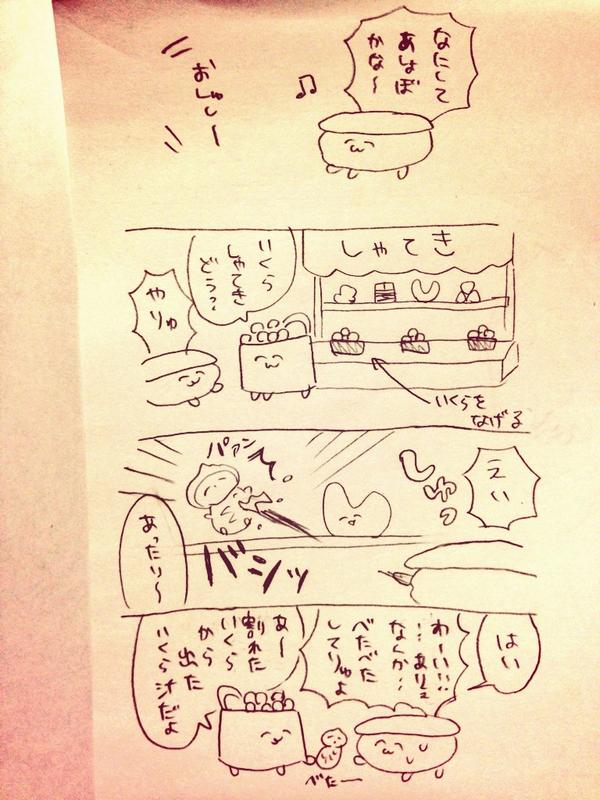 なにして
あしょぼ
かな〜
♪
おしゅしー
しゃてき
いくら
しゃてき
どう??
やりゅ
いくらを
なげる
えい
しゅっ
パァン
バシッ
あったり〜
はい
わーい!!
…ありぇ
なんか…
べたべた
してりゅよ
あ〜
割れた
いくら
から
出た
いくら汁だよ
べたー